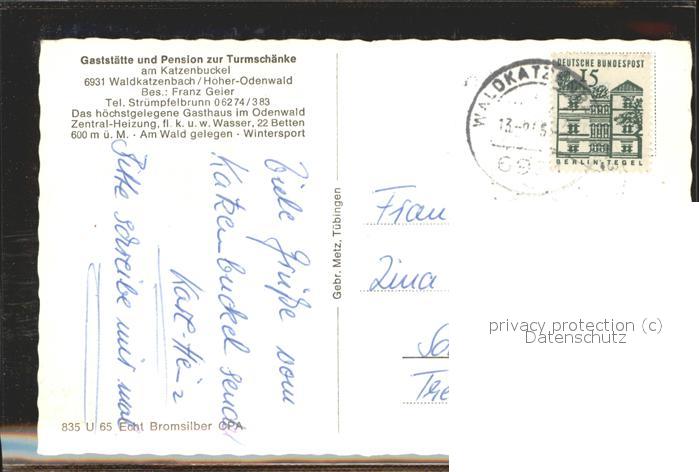 Gaststätte und Pension zur Turmschänke
am Katzenbuckel
6931 Waldkatzenbach / Hoher-Odenwald
Bes.: Franz Geier
Tel. Strümpfelbrunn 0 62 74 / 383
Das höchstgelegene Gasthaus im Odenwald
Zentral-Heizung, fl. k. u. w. Wasser, 22 Betten
600 m ü. M. - Am Wald gelegen - Wintersport
Viele Grüße vom
Katzenbuckel sendet
Karl-Heinz
Bitte schreibe mir mal
835 U 65 Echt Bromsilber
Gebr. Metz, Tübingen
WALDKATZ
DEUTSCHE BUNDESPOST
15
BERLIN-TEGEL
Frau
Lina
privacy protection (c)
Datenschutz